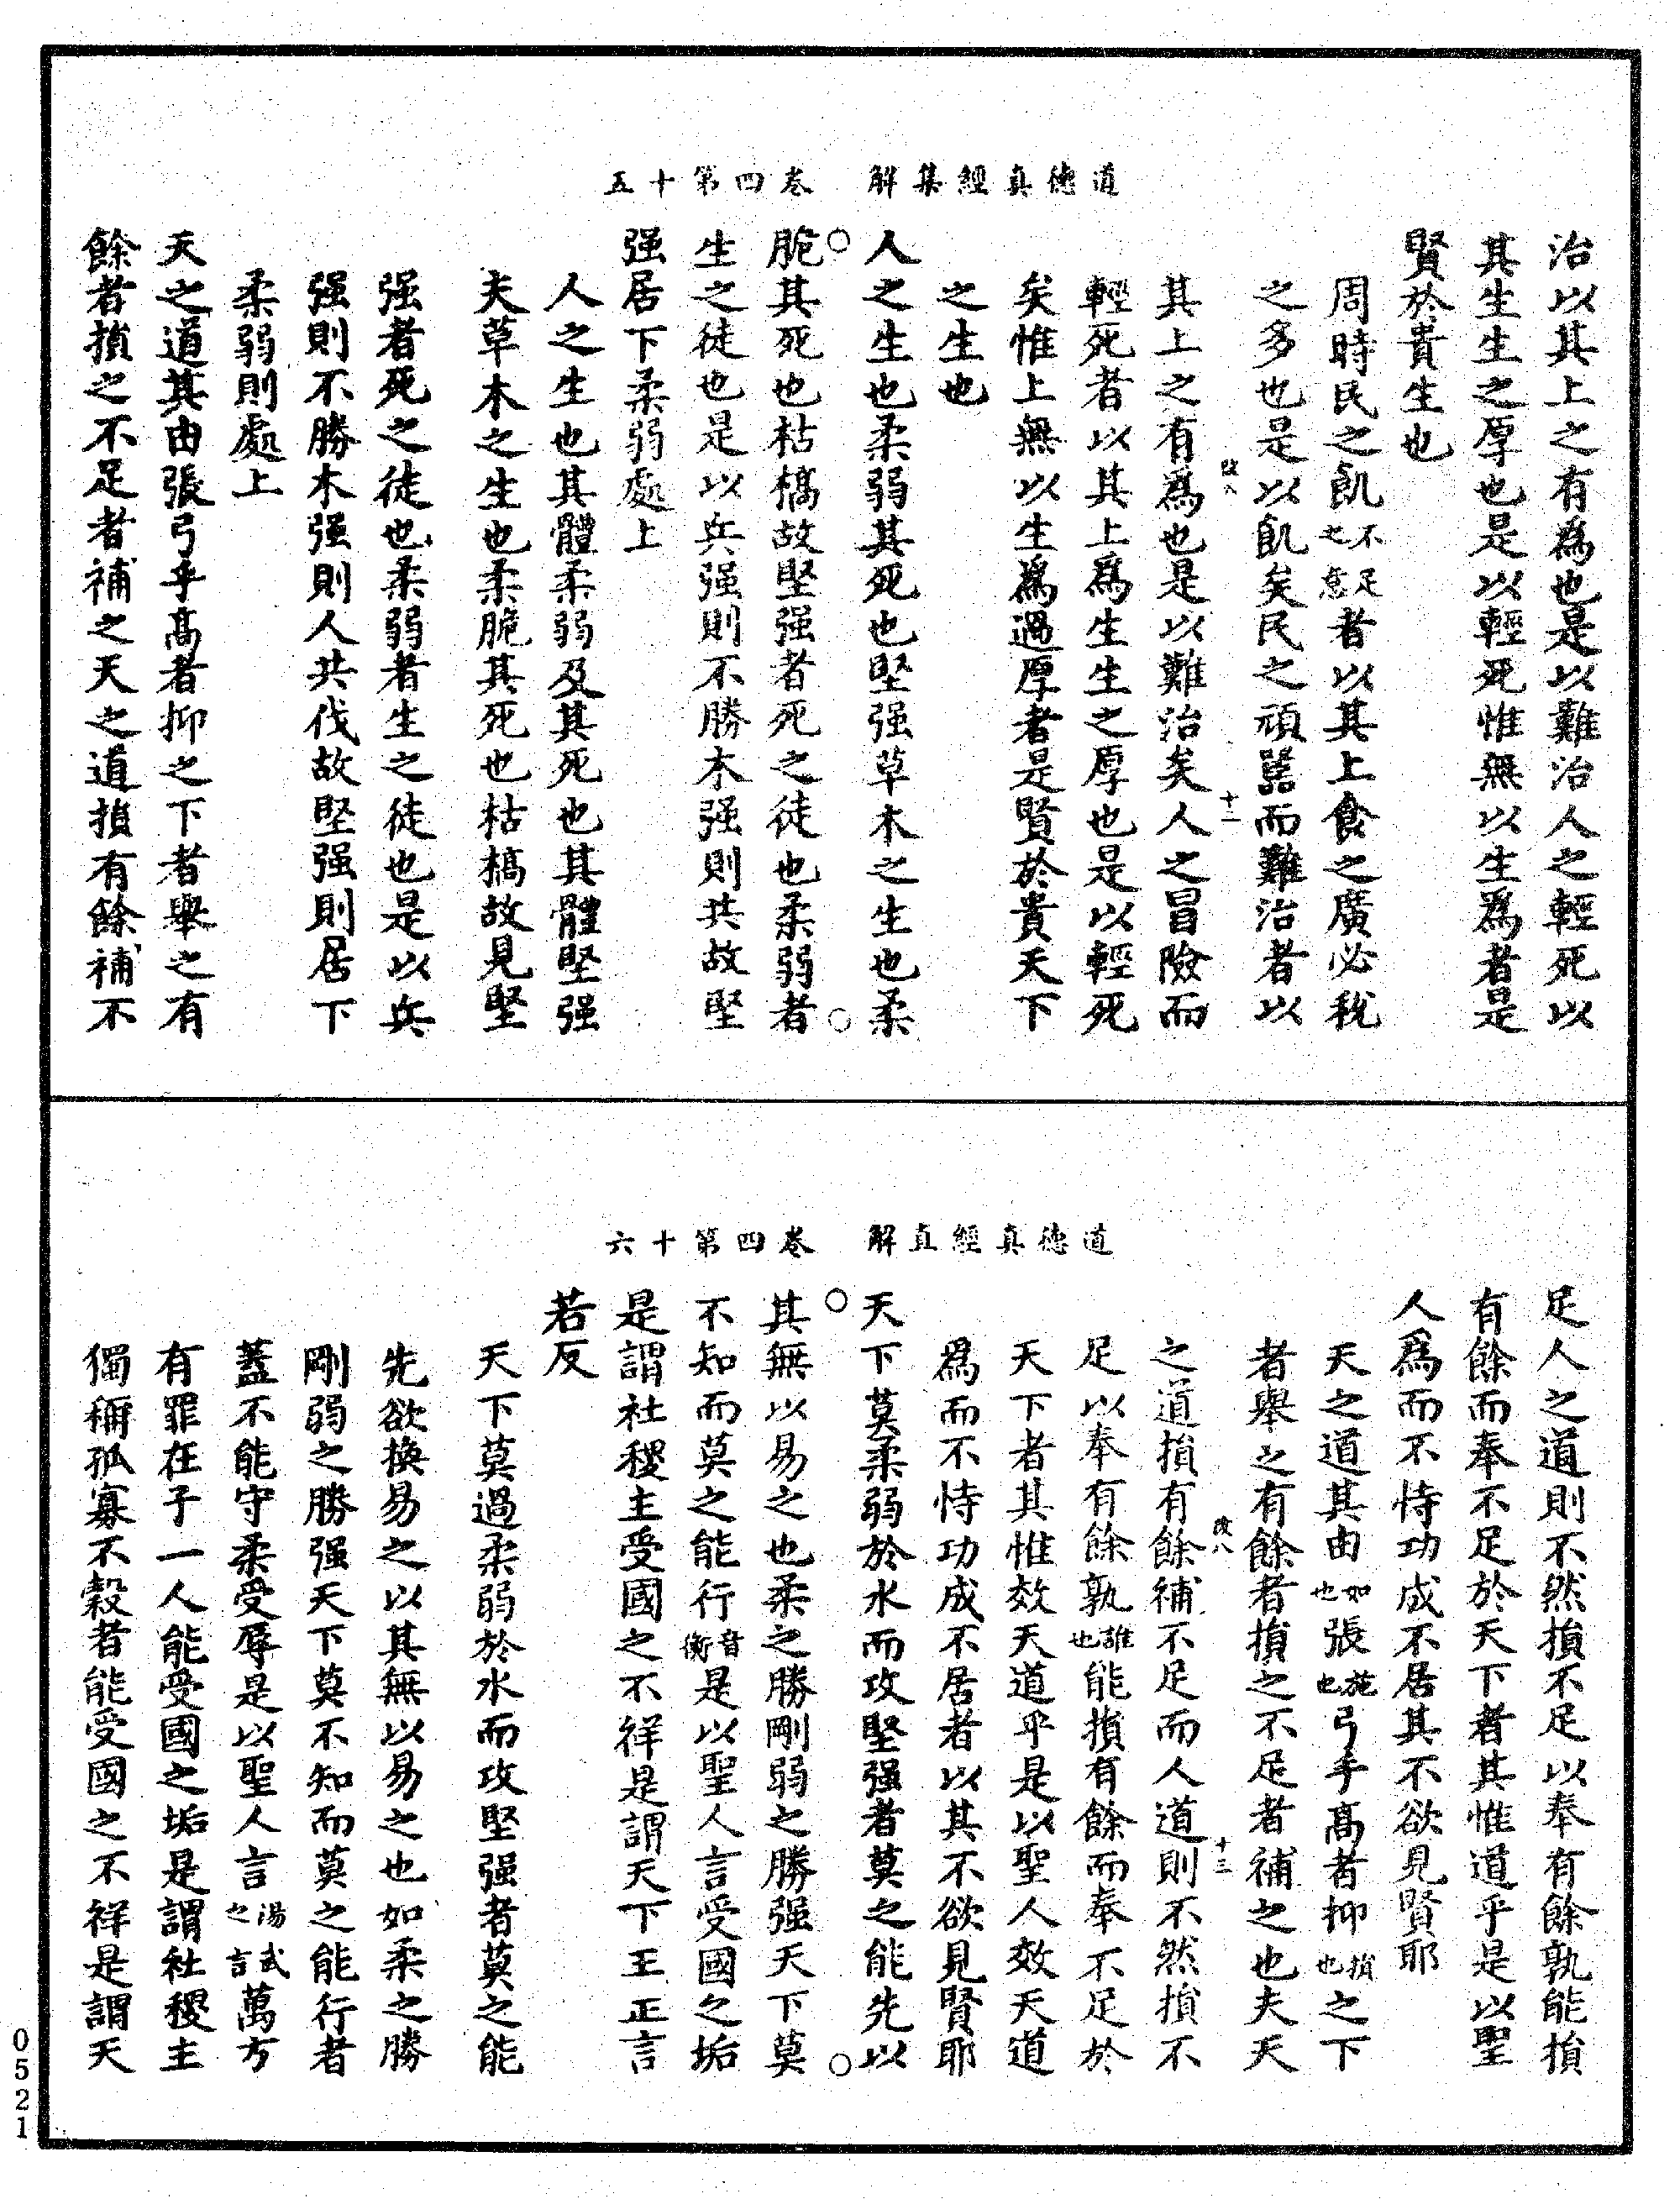 道德真經集解　卷四第十五
治以其上之有爲也是以難治人之輕死以
其生生之厚也是以輕死惟無以生爲者是
賢於貴生也
周時民之飢不足之意者以其上食之廣必稅
之多也是以飢矣民之頑嚚而難治者以
改八　十二
其上之有爲也是以難治矣人之冒險而
輕死者以其上爲生生之厚也是以輕死
矣惟上無以生爲過厚者是賢於貴天下
之生也
人之生也柔弱其死也堅强草木之生也柔
○脆其死也枯槁故堅强者死之徒也柔弱者○
生之徒也是以兵强則不勝木强則共故堅
强居下柔弱處上
人之生也其體柔弱及其死也其體堅强
夫草木之生也柔脆其死也枯槁故見堅
强者死之徒也柔弱者生之徒也是以兵
强則不勝木强則人共伐故堅强則居下
柔弱則處上
天之道其由張弓乎高者抑之下者舉之有
餘者損之不足者補之天之道損有餘補不
道德真經直解　卷四第十六
足人之道則不然損不足以奉有餘孰能損
有餘而奉不足於天下者其惟道乎是以聖
人爲而不恃功成不居其不欲見賢耶
天之道其由如也張施也弓乎高者抑損也之下
者舉之有餘者損之不足者補之也夫天
改八　十三
之道損有餘補不足而人道則不然損不
足以奉有餘孰誰也能損有餘而奉不足於
天下者其惟效天道乎是以聖人效天道
爲而不恃功成不居者以其不欲見賢耶
天下莫柔弱於水而攻堅强者莫之能先以
○其無以易之也柔之勝剛弱之勝强天下莫○
不知而莫之能行音衡是以聖人言受國之垢
是謂社稷主受國之不祥是謂天下王正言
若反
天下莫過柔弱於水而攻堅强者莫之能
先欲換易之以其無以易之也如柔之勝
剛弱之勝强天下莫不知而莫之能行者
蓋不能守柔受辱是以聖人言湯武之言萬方
有罪在予一人能受國之垢是謂社稷主
獨稱孤寡不穀者能受國之不祥是謂天
0521